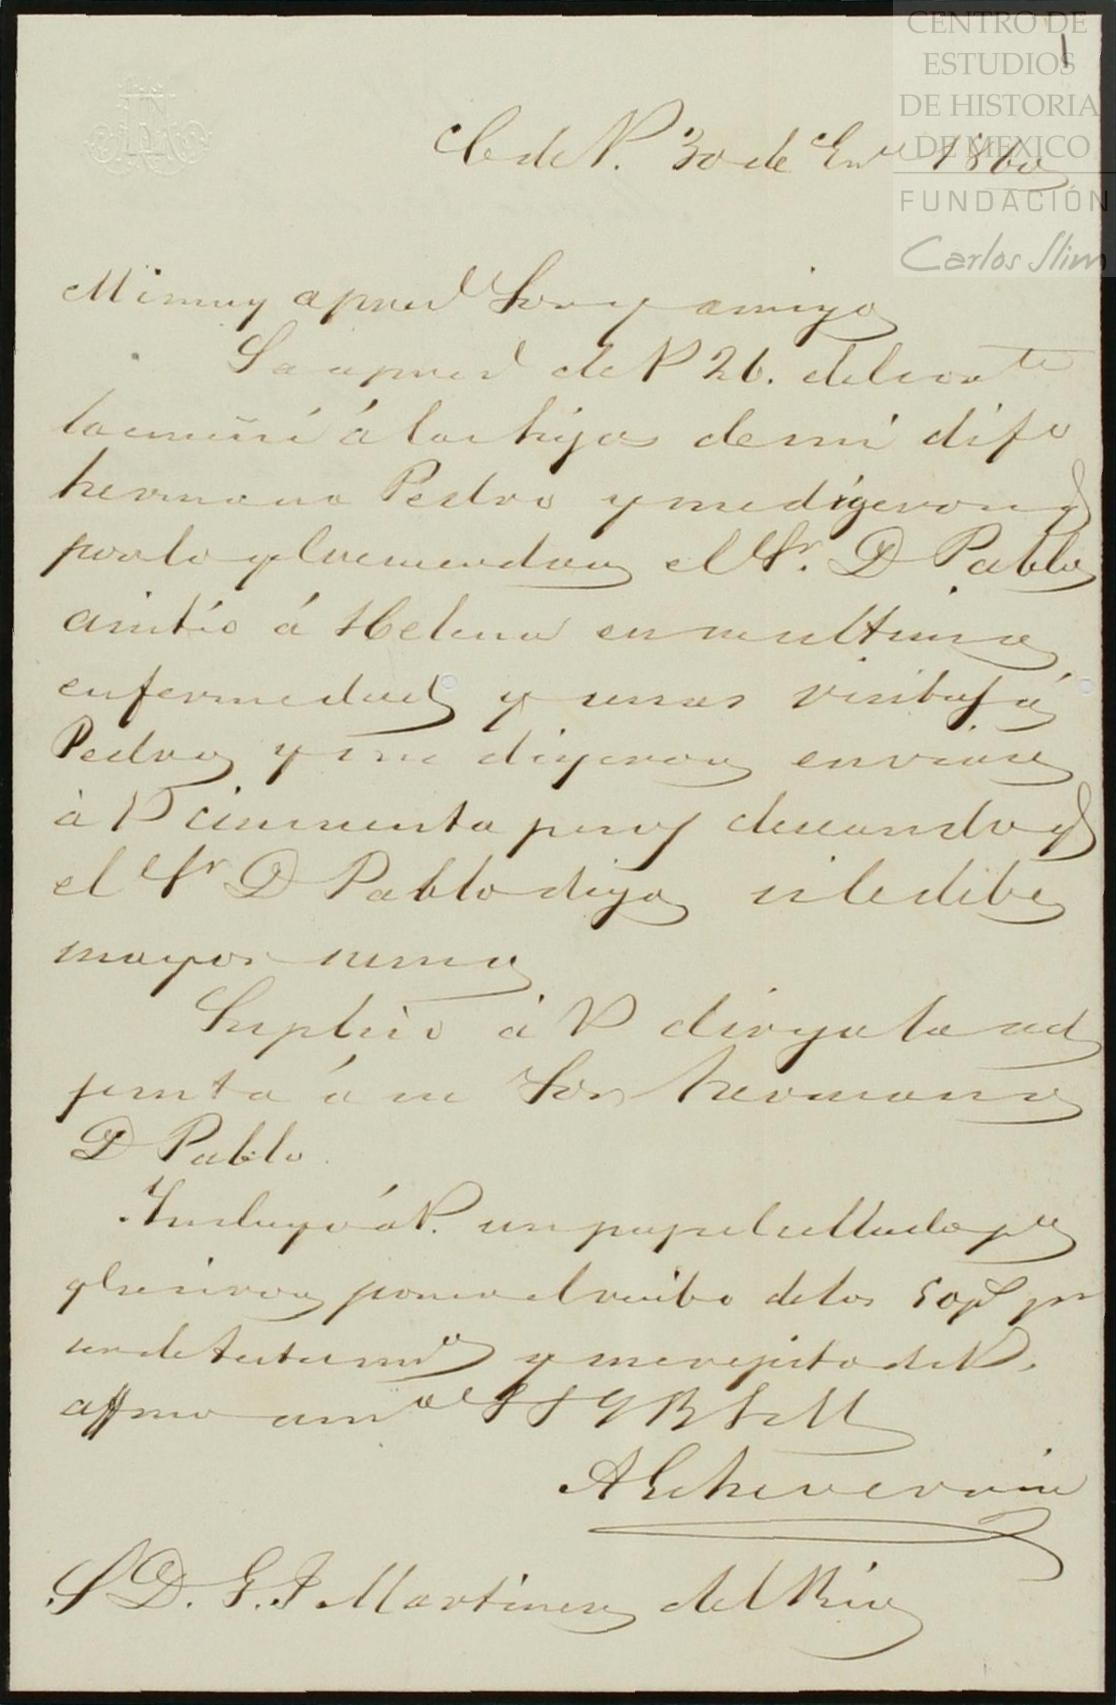 CENTRO DE
ESTUDIOS
DE HISTORIA
DE MEXICO
FUNDACIÓN
Carlos Slim
1
C de V. 30 de Eno 1860
Mi muy apred Sor y amigo
La apred de V 26. del corte
la enseñé á las hijas de mi difo
hermano Pedro y me digeron q
por lo q recuerdan el Sr. D Pablo
asistió á Helena en su ultima
enfermedad y unas visitas á
Pedro y me digeron enviase
á V cincuenta pesos deseando q
el Sr D Pablo diga si le deben
mayor suma
Suplico á V dirija la ad
junta á su Sor hermano
D Pablo.
Incluyo á V. un papel sellado pa
q se sirva poner el recibo de los 50 ps pr
y me repito de V.
affmo amo S S Q B S M
A Echeverria
S D. G. J Martinez del Rio